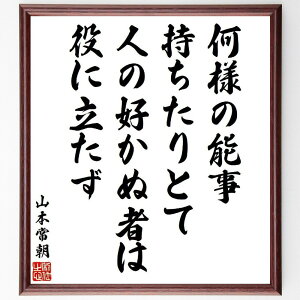 何様の能事
持ちたりとて
人の好かぬ者は
役に立たず
山本常朝